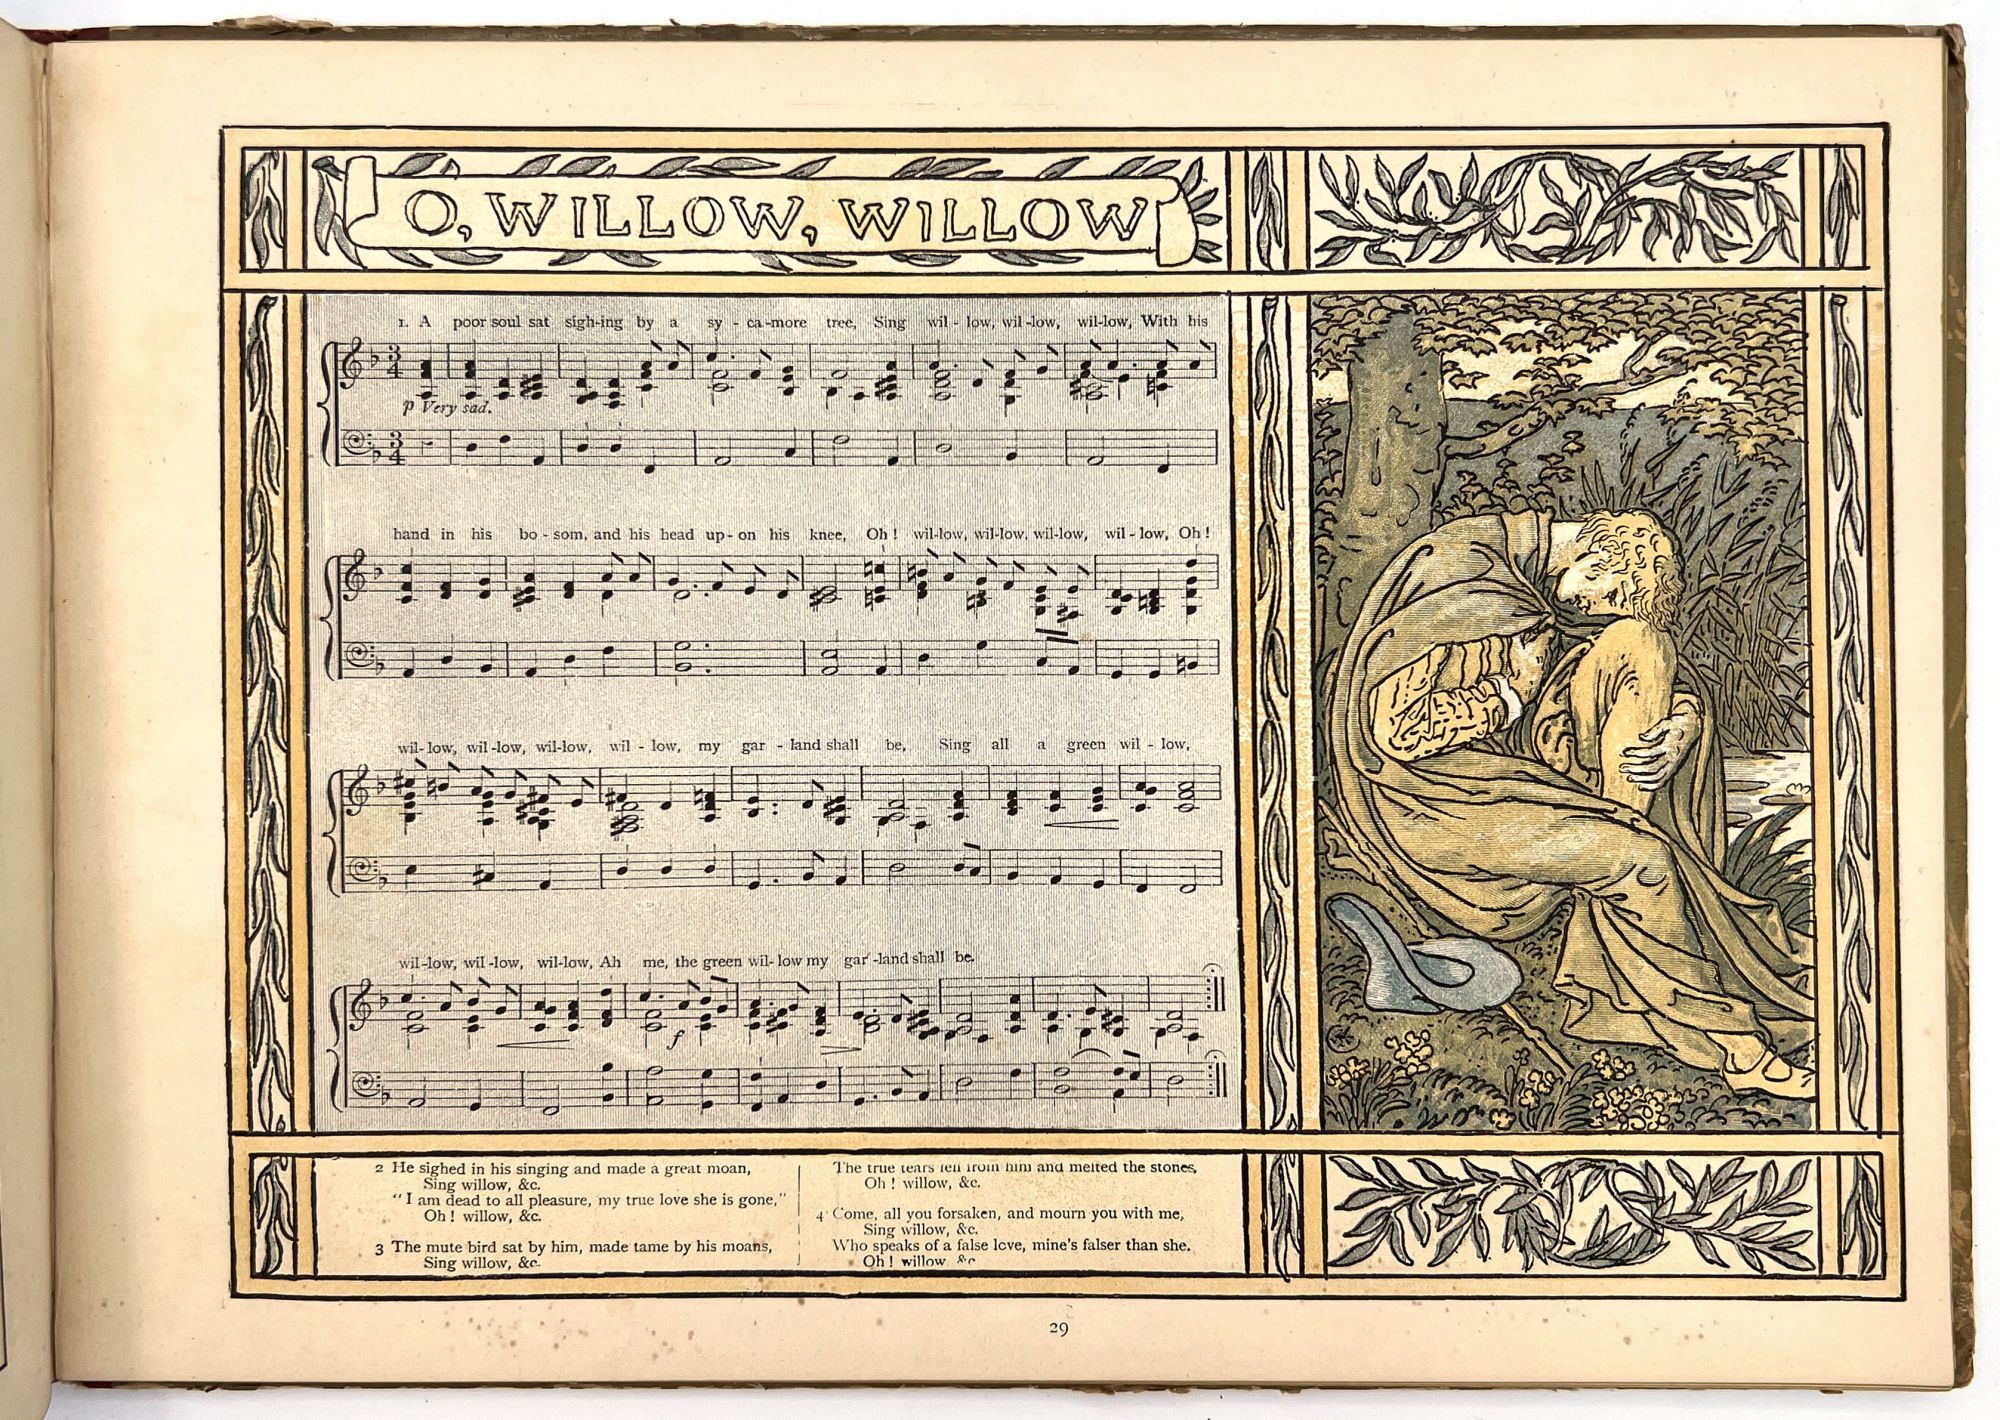 O, WILLOW, WILLOW
1. A poor soul sat sigh-ing by a sy - ca-more tree, Sing wil - low, wil - low, wil-low, With his
p Very sad.
hand in his bo - som, and his head up - on his knee, Oh! wil-low, wil-low, wil-low, wil - low, Oh!
wil- low, wil - low, wil-low, wil - low, my gar - land shall be, Sing all a green wil - low,
wil -low, wil -low, wil-low, Ah me, the green wil- low my gar -land shall be.
f
2 He sighed in his singing and made a great moan,
Sing willow, &c.
"I am dead to all pleasure, my true love she is gone,"
Oh! willow, &c.
3 The mute bird sat by him, made tame by his moans,
Sing willow, &c.
The true tears fell from him and melted the stones,
Oh! willow, &c.
4 Come, all you forsaken, and mourn you with me,
Sing willow, &c.
Who speaks of a false love, mine's falser than she.
Oh! willow &c
29